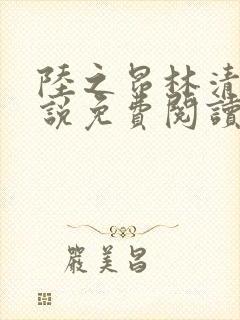 陸之昂林清
說免費閱讀
嚴美昌